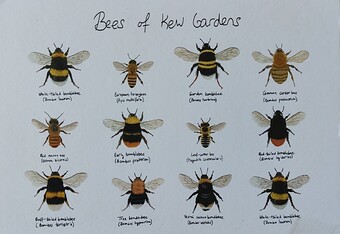 Bees of Kew Gardens
White-tailed bumblebee
(Bombus lucorum)
European honeybee
(Apis mellifera)
Garden bumblebee
(Bombus hortorum)
Common carder bee
(Bombus pascuorum)
Red mason bee
(Osmia bicornis)
Early bumblebee
(Bombus pratorum)
Leaf-cutter bee
(Megachile centuncularis)
Red-tailed bumblebee
(Bombus lapidarius)
Buff-tailed bumblebee
(Bombus terrestris)
Tree bumblebee
(Bombus hypnorum)
bumblebee
(Bombus vestalis)
White-tailed bumblebee
(Bombus lucorum)